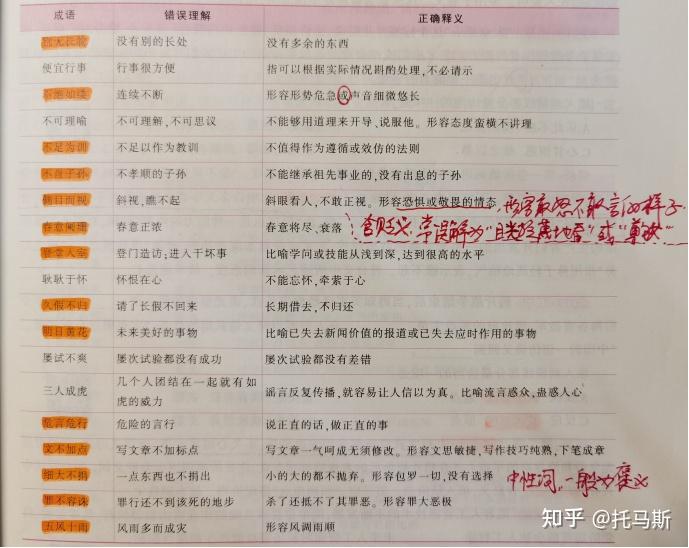 成语 错误理解 正确释义
别无长物 没有别的长处 没有多余的东西
便宜行事 行事很方便 指可以根据实际情况斟酌处理,不必请示
不绝如缕 连续不断 形容形势危急或声音细微悠长
不可理喻 不可理解,不可思议 不能够用道理来开导、说服他。形容态度蛮横不讲理
不足为训 不足以作为教训 不值得作为遵循或效仿的法则
不肖子孙 不孝顺的子孙 不能继承祖先事业的,没有出息的子孙
侧目而视 斜视,瞧不起 斜眼看人,不敢正视。形容恐惧或敬畏的情态
敢怒不敢言的样子
春意阑珊 春意正浓 春意将尽、衰落
含贬义 常误解为“目光轻蔑地看”或“藐视”
登堂入室 登门造访;进入干坏事 比喻学问或技能从浅到深,达到很高的水平
耿耿于怀 怀恨在心 不能忘怀,牵萦于心
久假不归 请了长假不回来 长期借去,不归还
明日黄花 未来美好的事物 比喻已失去新闻价值的报道或已失去应时作用的事物
屡试不爽 屡次试验都没有成功 屡次试验都没有差错
三人成虎 几个人团结在一起就有如虎的威力 谣言反复传播,就容易让人信以为真。比喻流言惑众,蛊惑人心
危言危行 危险的言行 说正直的话,做正直的事
文不加点 写文章不加标点 写文章一气呵成无须修改。形容文思敏捷,写作技巧纯熟,下笔成章
细大不捐 一点东西也不捐出 小的大的都不抛弃。形容包罗一切,没有选择
中性词,一般为褒义
罪不容诛 罪行还不到该死的地步 杀了还抵不了其罪恶。形容罪大恶极
五风十雨 风雨多而成灾 形容风调雨顺
知乎 @托马斯